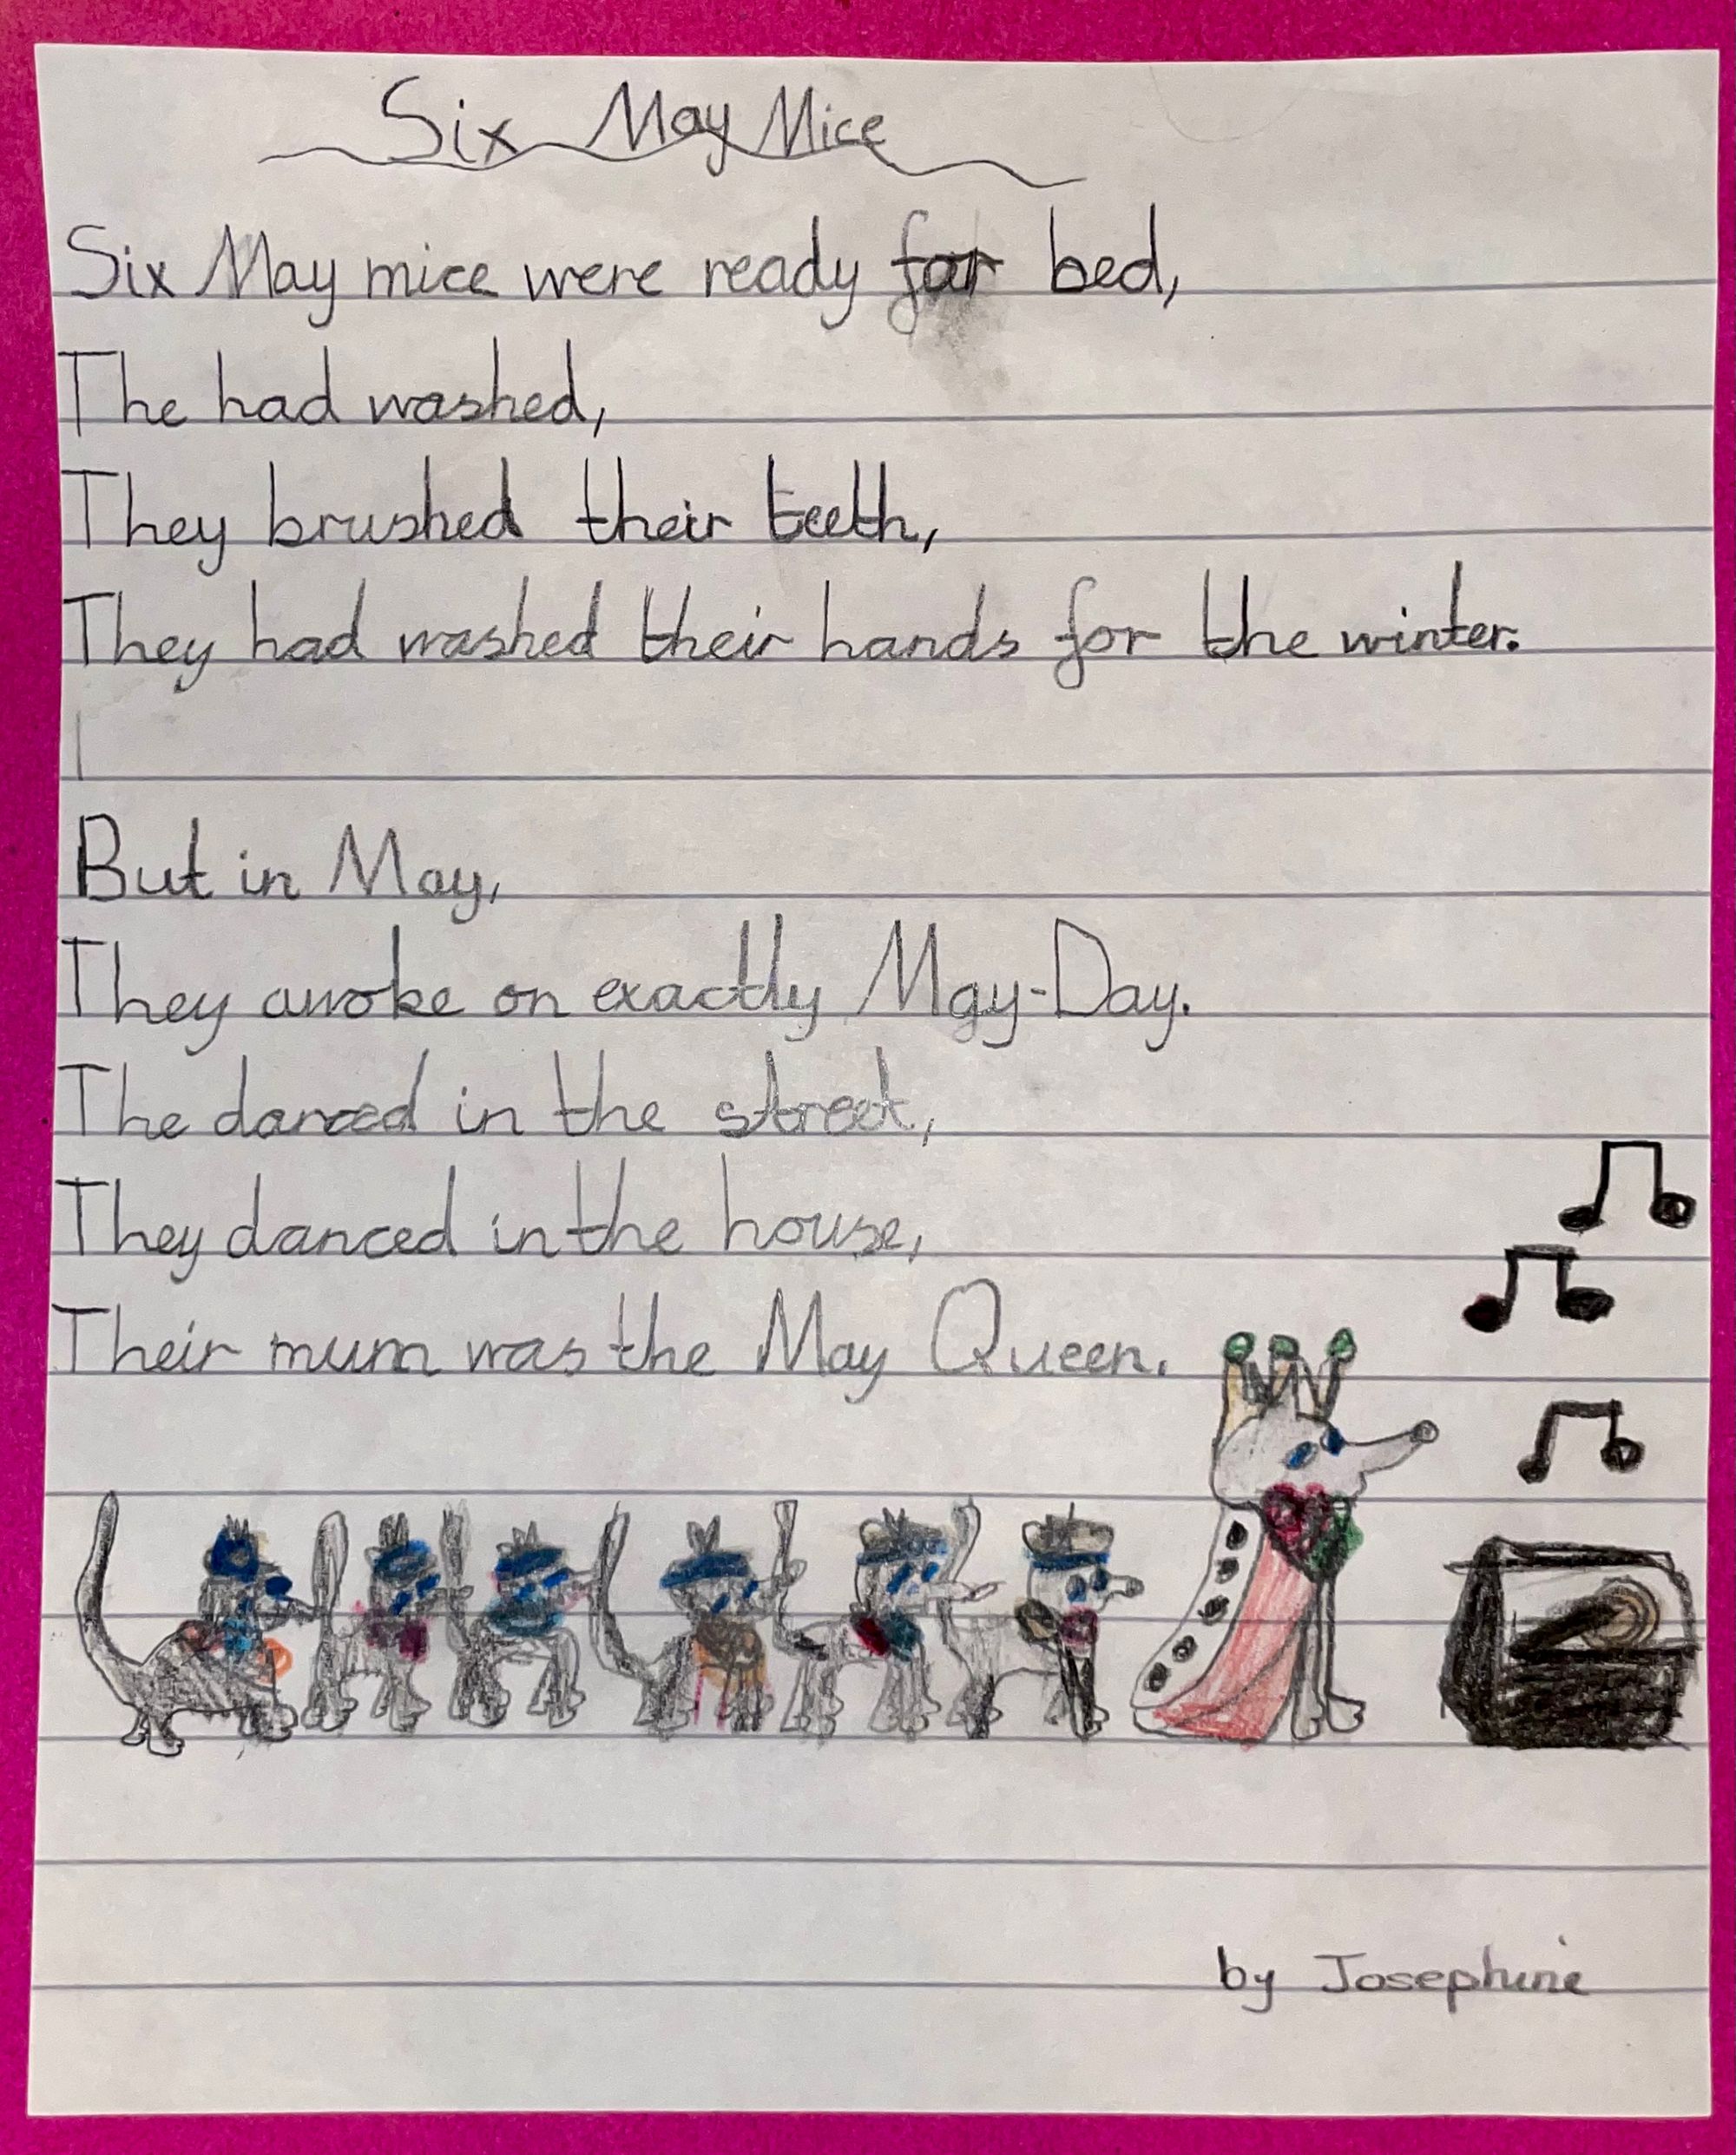 Six May Mice
Six May mice were ready for bed,
The had washed,
They brushed their teeth,
They had washed their hands for the winter.
But in May,
They awoke on exactly May-Day.
The danced in the street,
They danced in the house,
Their mum was the May Queen.
by Josephine